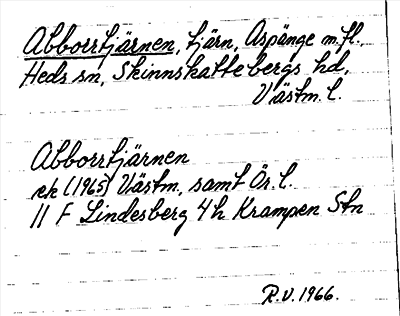 Abborrtjärnen, tjärn, Aspänge m.fl.,
Heds sn, Skinnskattebergs hd,
Västm. l.
Abborrtjärnen
ek (1965) Västm, samt Ör. l.
11 F Lindesberg 4h Krampen Stn
R.V. 1966.